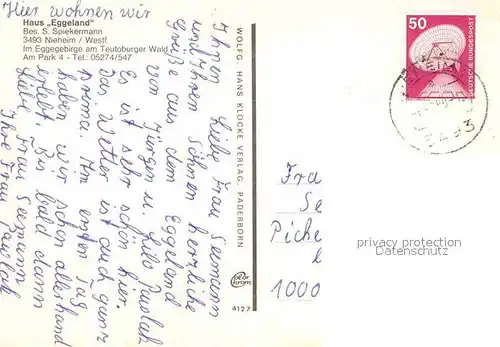 Hier wohnen wir
Haus „Eggeland"
Bes. S. Spiekermann
3493 Nieheim / Westf.
Im Eggegebirge am Teutoburger Wald
Am Park 4 - Tel.: 05274/547
Liebe Frau Seemann
Ihnen und Ihren Söhnen herzliche
Grüße aus dem Eggeland
von Jürgen u. Lilo Pawlak
Es ist sehr schön hier.
Das Wetter ist auch ganz
prima. Am ersten Tag
haben wir schon allerhand
erlebt. Bis bald dann
liebe Frau Seemann
Ihre Frau Pawlak
WOLFG. HANS KLOCKE VERLAG, PADERBORN
color chrom
4127
50
DEUTSCHE BUNDESPOST
3493
Fra
Se
Piche
1000
privacy protection
Datenschutz